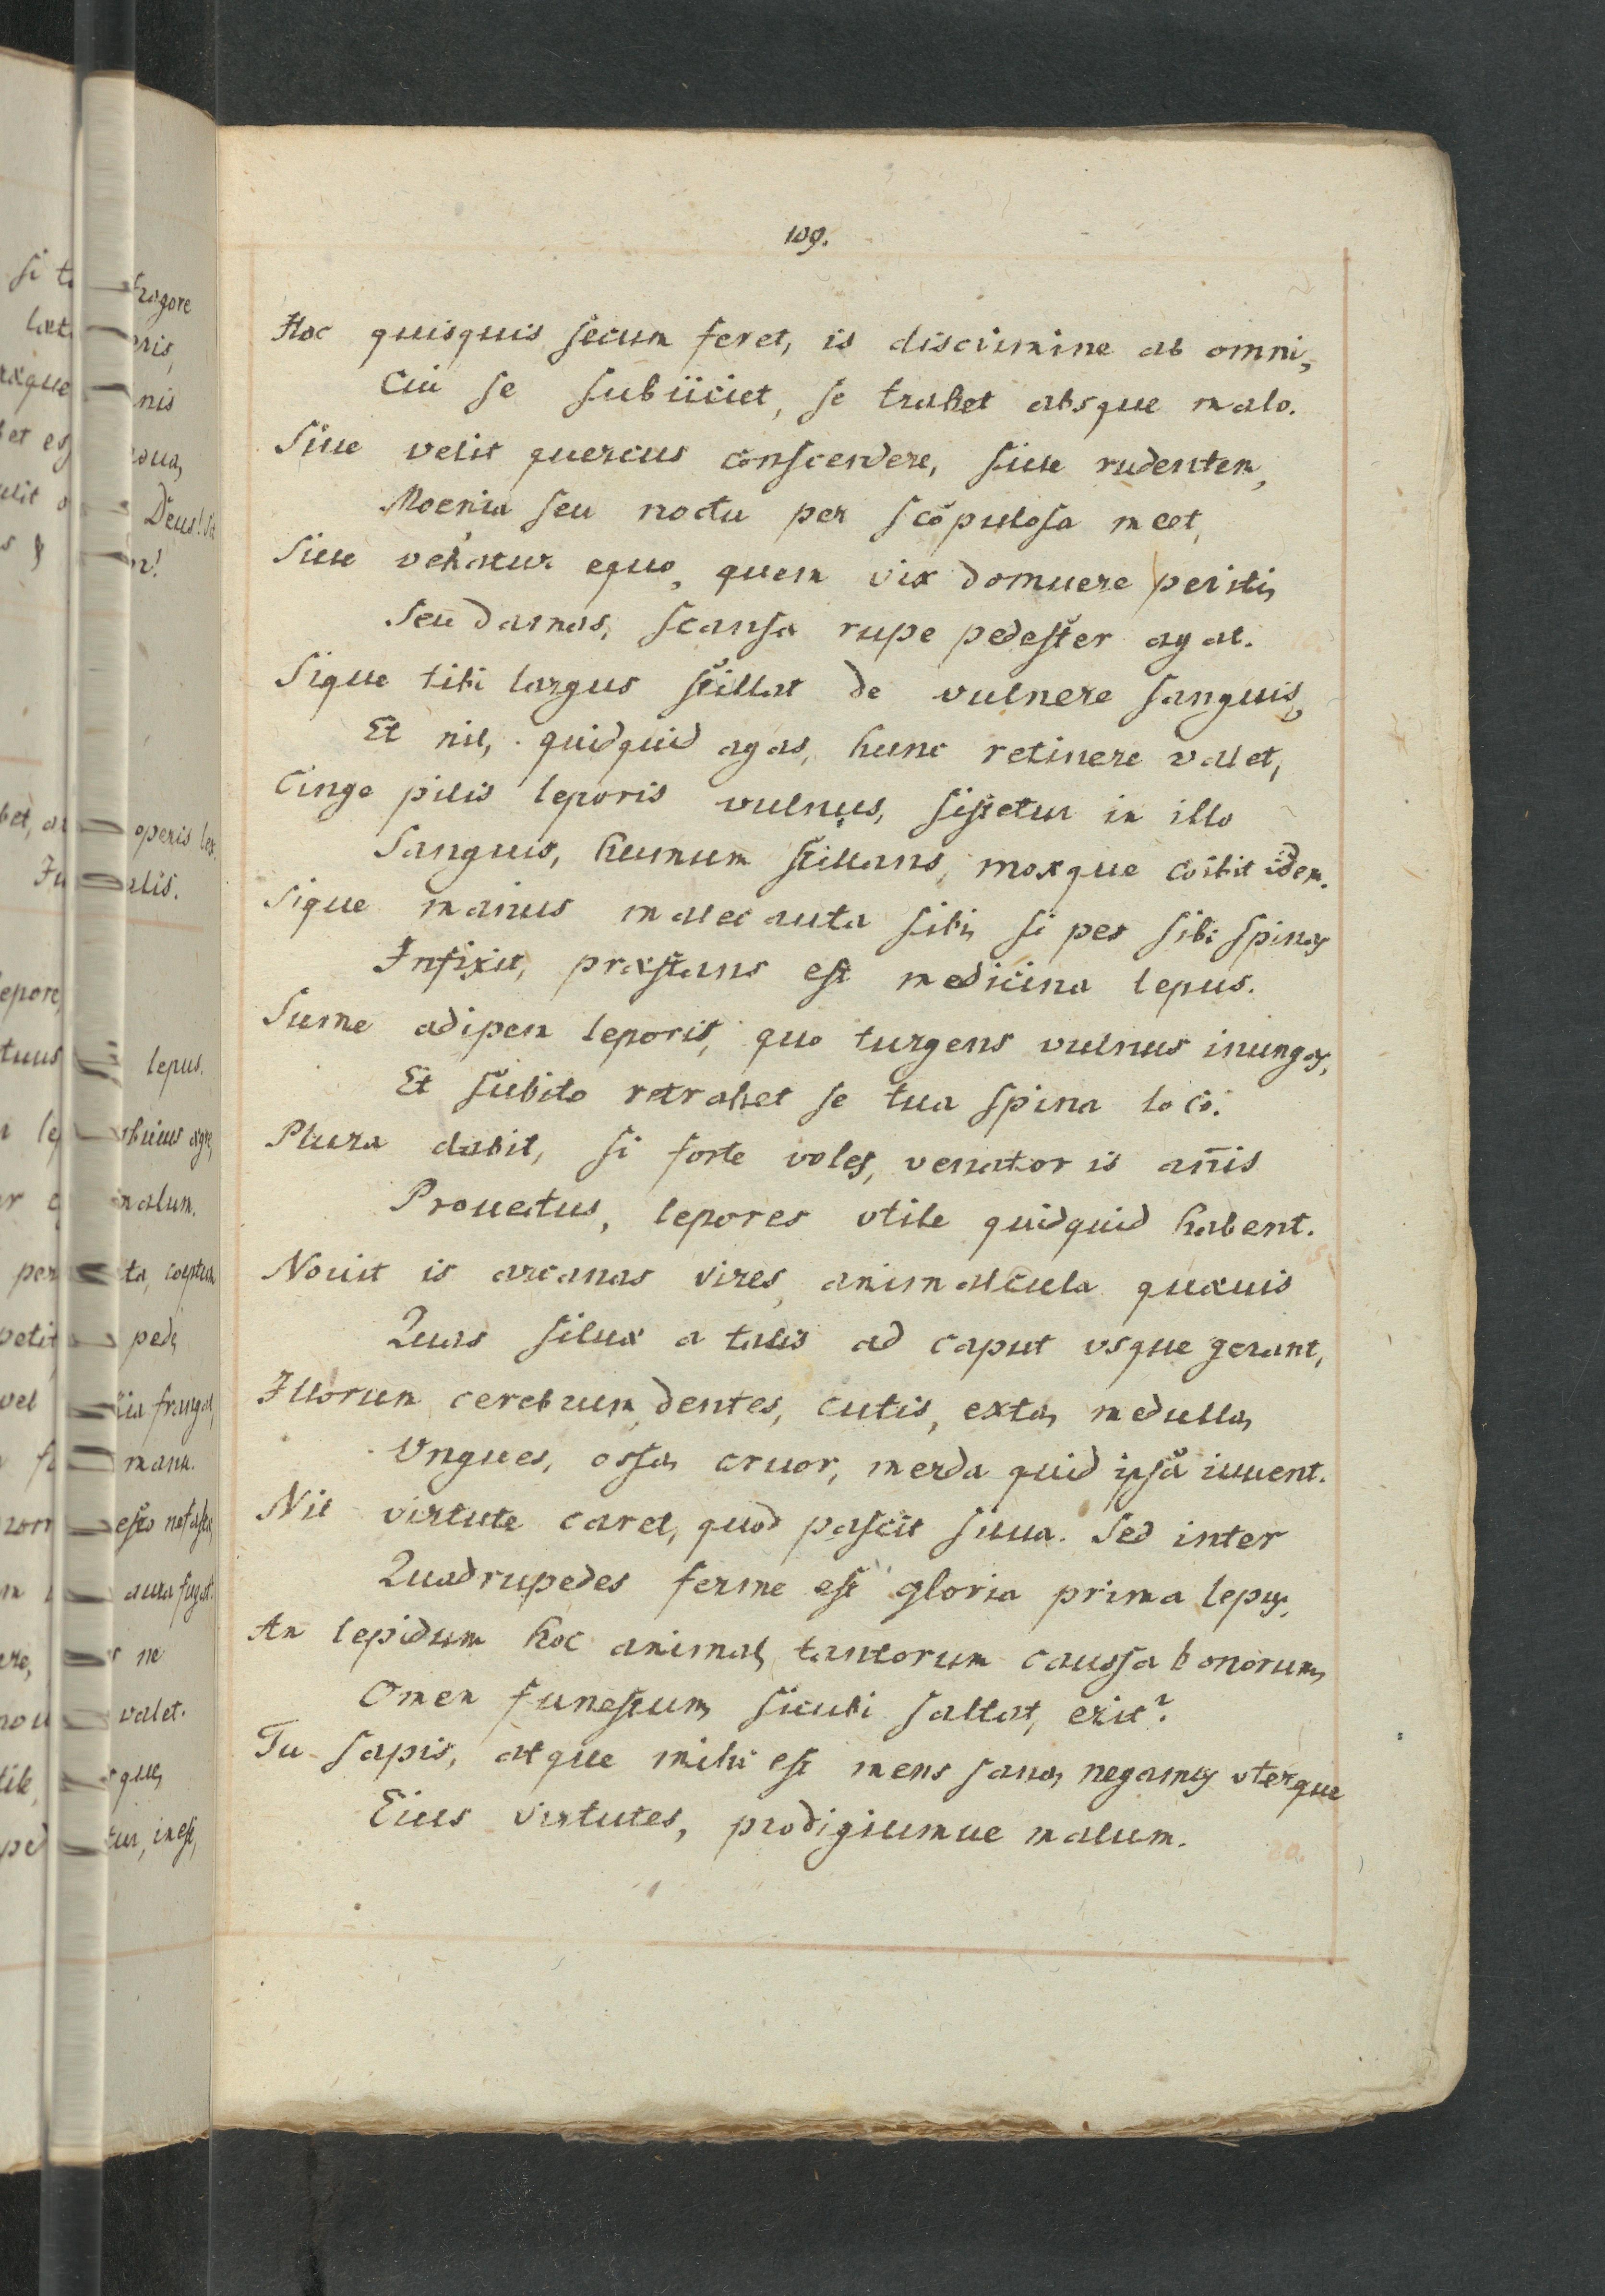 109.
Hoc quisquis secum feret, is discrimine ab omni,
Cui se subiiciet, se trahet absque malo.
Siue velit quercus conscendere, siue rudentem,
Moenia seu noctu per scopulosa meet,
Siue vehatur equo, quem vix domuere periti,
Seu damas, scansa rupe pedester agat.
Sique tibi largus stillat de vulnere sanguis,
Et nil, quidquid agas, hunc retinere valet,
Cinge pilis leporis vulnus, sistetur in illo
Sanguis, humum stillans, moxque coibit idem.
Sique manus malecauta sibi, si pes sibi spinas
Infixit, præstans est medicina lepus.
Sume adipem leporis, quo turgens vulnus inungas,
Et subito retrahet se tua spina loco.
Plura dabit, si forte voles, venator is an̄is
Prouectus, lepores vtile quidquid habent.
Nouit is arcanas vires, animalcula quæuis
Quas siluæ a talis ad caput vsque gerant,
Illorum cerebrum, dentes, cutis, exta, medulla,
Vngues, ossa, cruor, merda quid ipsa iuuent.
Nil virtute caret, quod pascit silua. Sed inter
Quadrupedes ferme est gloria prima lepus.
An lepidum hoc animal, tantorum caussa bonorum,
Omen funestum, sicubi saltat, erit?
Tu sapis, atque mihi est mens sana, negamus vterque
Eius virtutes, prodigiumue malum.